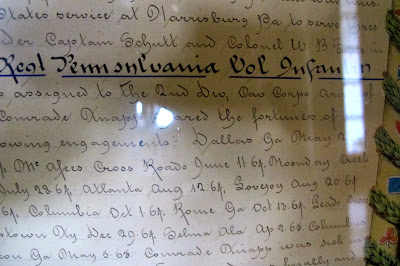 States service at Harrisburg Pa to serve three
under Captain Schutt and Colonel W. B. in
Regt Pennsylvania Vol Infantry
assigned to the 2nd Div, Cav Corps Army of
Comrade Knapp shared the fortunes of
following engagements: Dallas Ga May 2
McAfees Cross Roads June 11 64. Noonday Creek
July 28 64. Atlanta Aug 12 64. Lovejoy Aug 20 64
64. Columbia Oct 1 64. Rome Ga Oct 13 64. Lead
town Ky Dec 29. 64. Selma Ala Ap 2 65. Columbus
con Ga May 6. 65. Comrade Knapp was sick
and